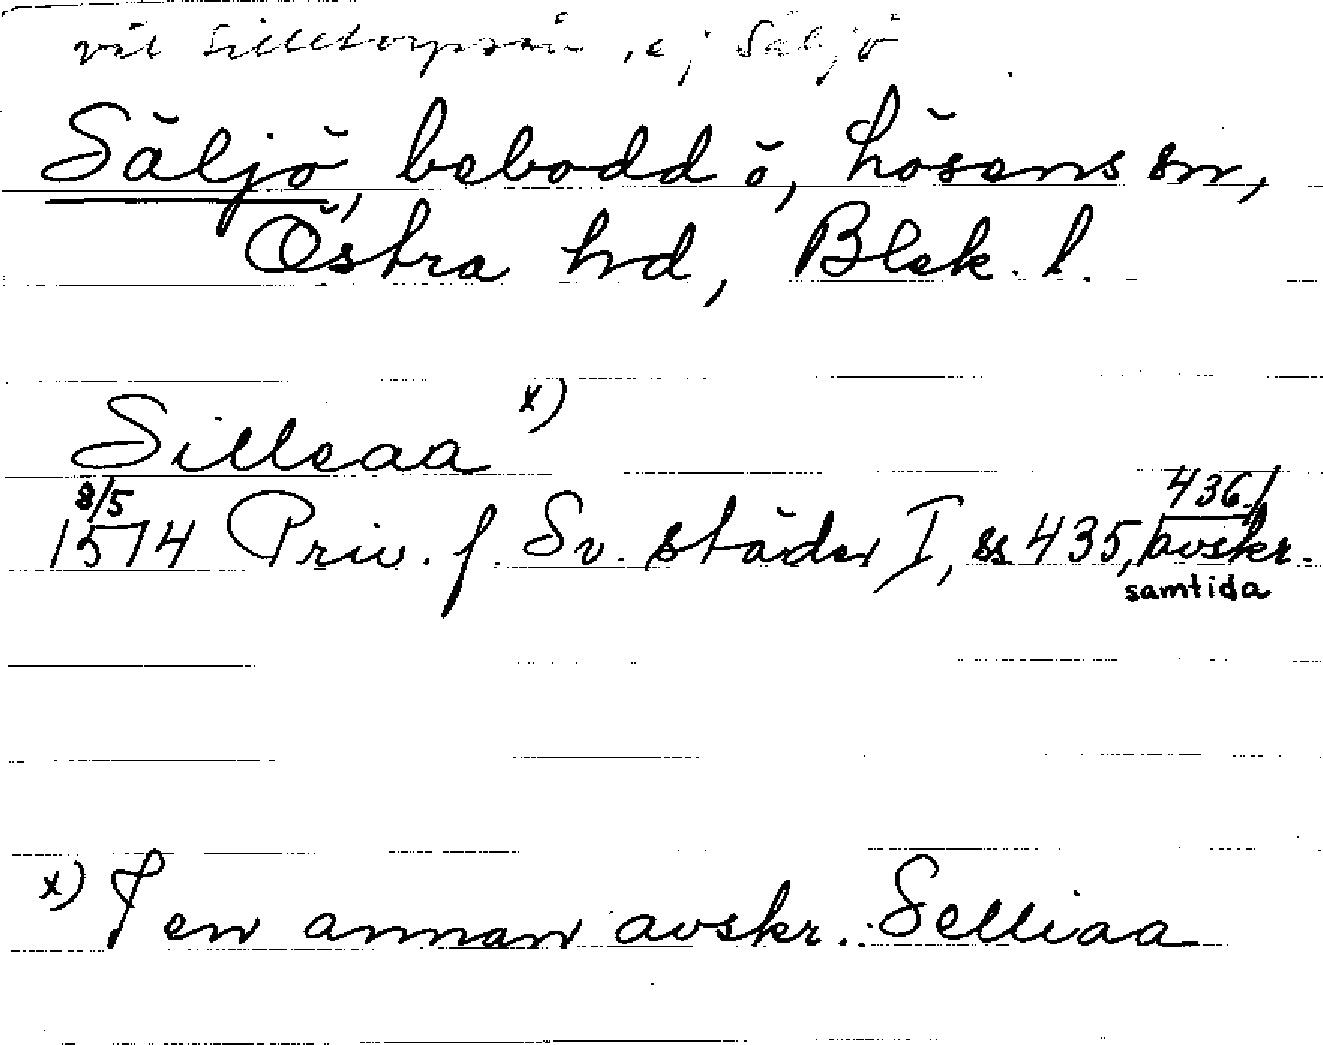 väl Silletorpsån, ej Säljö
Säljö, bebodd ö, Lösens sn,
Östra hd, Blek. l.
Silleaa x)
8/5 436./
1574 Priv. f. Sv. städer I, ss 435, avskr.
samtida
x) I en annan avskr. Selliaa